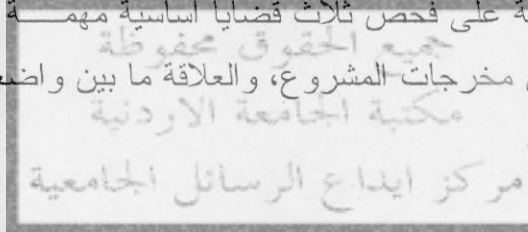 ة على فحص ثلاث قضايا أساسية مهمــــة
جميع الحقوق محفوظة
مخرجات المشروع، والعلاقة ما بين واضع
مكتبة الجامعة الاردنية
مركز ايداع الرسائل الجامعية